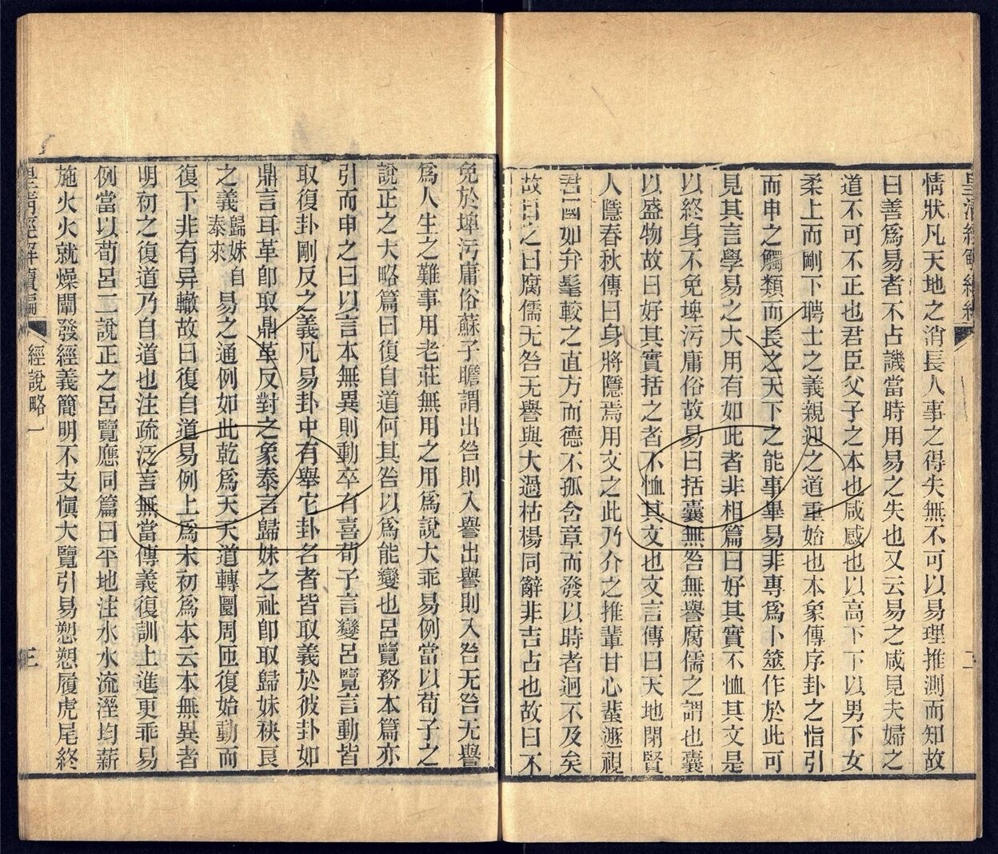 皇清經解續編
情狀凡天地之消長人事之得失無不可以易理推測而知故
曰善爲易者不占譏當時用易之失也又云易之咸見夫婦之
道不可不正也君臣父子之本也咸感也以高下下以男下女
柔上而剛下聘士之義親迎之道重始也本彖傳序卦之恉引
而申之觸類而長之天下之能事畢易非專爲卜筮作於此可
見其言學易之大用有如此者非相篇曰好其實不恤其文是
以終身不免埤污庸俗故易曰括囊無咎無譽腐儒之謂也囊
以盛物故曰好其實括之者不恤其文也文言傳曰天地閉賢
人隱春秋傳曰身將隱焉用文之此乃介之推輩甘心蜚遯視
君國如弁髦較之直方而德不孤含章而發以時者迥不及矣
故目之曰腐儒无咎无譽與大過枯楊同辭非吉占也故曰不
免於埤污庸俗蘇子瞻謂出咎則入譽出譽則入咎无咎无譽
爲人生之難事用老莊無用之用爲說大乖易例當以荀子之
說正之大略篇曰復自道何其咎以爲能變也呂覽務本篇亦
引而申之曰以言本無異則動卒有喜荀子言變呂覽言動皆
取復卦剛反之義凡易卦中有舉它卦名者皆取義於彼卦如
鼎言耳革卽取鼎革反對之象泰言歸妹之祉卽取歸妹袂良
之義歸妹自泰來易之通例如此乾爲天天道轉圜周匝復始動而
復下非有异轍故曰復自道易例上爲末初爲本云本無異者
明初之復道乃自道也注疏泛言無當傳義復訓上進更乖易
例當以荀呂二說正之呂覽應同篇曰平地注水水流溼均薪
施火火就燥闡發經義簡明不支愼大覽引易愬愬履虎尾終
皇清經解續編
經說略一